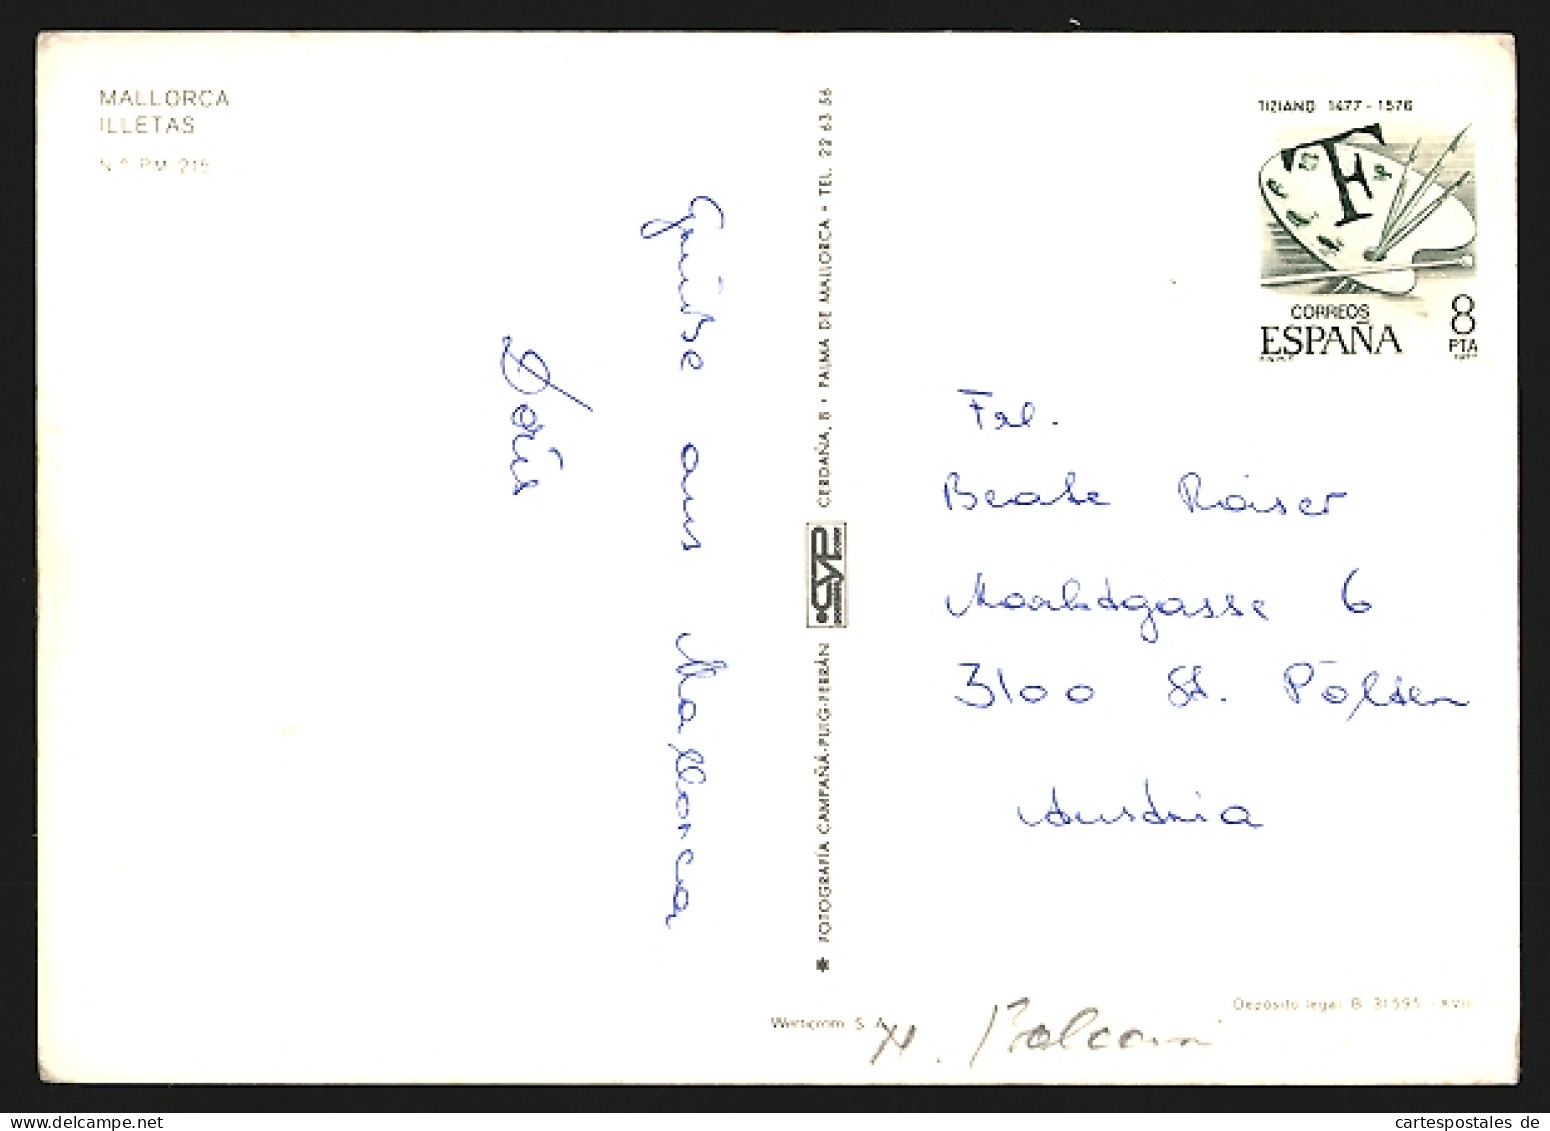 MALLORCA
ILLETAS
N.º PM 215
Grüße aus Mallorca
Doris
✱ FOTOGRAFÍA CAMPAÑÁ-PUIG-FERRÁN
CYP
CERDAÑA, 8 • PALMA DE MALLORCA • TEL. 29 63 56
TIZIANO 1477-1576
CORREOS
ESPAÑA
8
PTA
1977
Frl.
Beate Raiser
Marktgasse 6
3100 St. Pölten
Austria
Depósito legal B. 31595-XVII
S. A.
cartespostales de